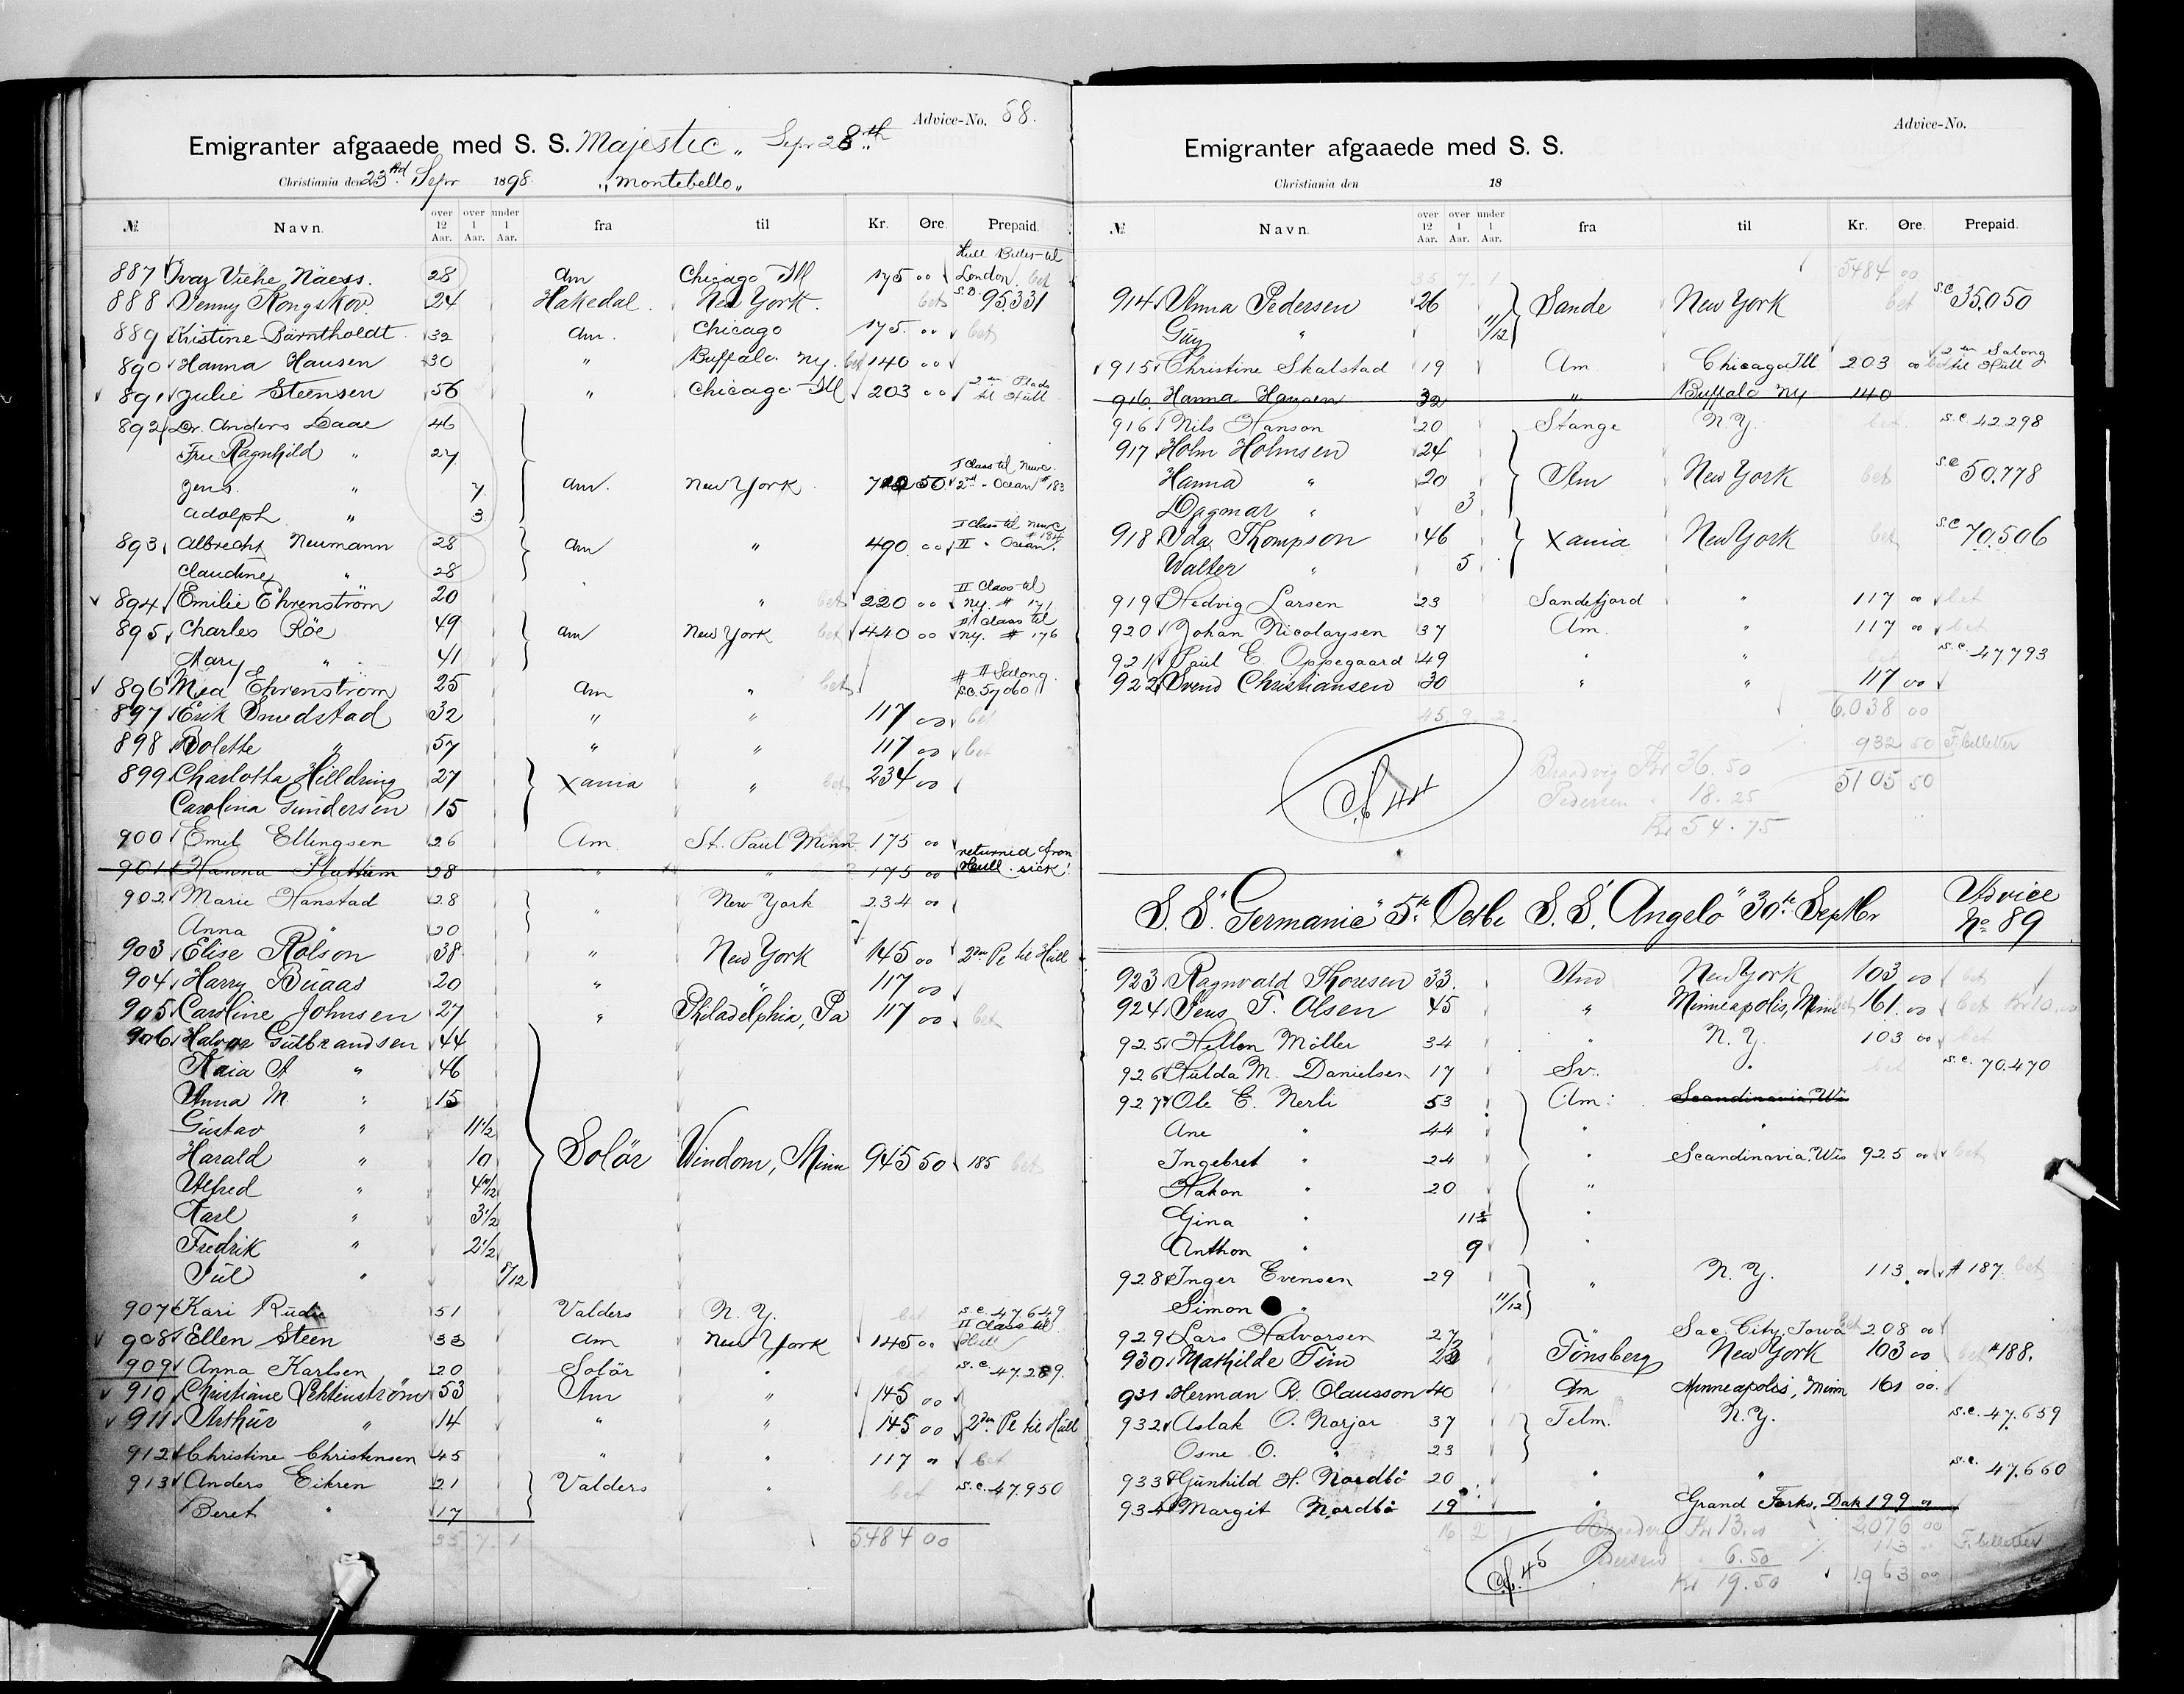 Advice-No. 88.
Emigranter afgaaede med S. S. Majestic „ Sepr 28th „
Christiania den 23rd Sepr 1898. „Montebello„
№ Navn. over 12 Aar. over 1 Aar. under 1 Aar. fra til Kr. Øre. Prepaid.
Hull Billet til
887 Ivar Viehe Näess. 28 Am Chicago Ill 175 00 London. bet
888 Denny Kongskov 24 Hakedal. New York. bet S.D. 95331
889 Kristine Bärntholdt 32 Am. Chicago 175. 00 bet
890 Hanna Hansen 30 " Buffalo. Ny. bet 140 00
891 Julie Steensen 56 " Chicago Ill 203 00 2den Plads til Hull
892 Dr. Anders Daae 46
Fru Ragnhild " 27
Jens. " 7 Am. New York. 50 I Class til Newc. 2nd - Ocean # 183
Adolph " 3
893 Albrecht Neumann 28 Am " 490 00 I Class til Newc # 184 II - Ocean.
Claudine " 28
894 Emilie Ehrenström 20 " bet 220 00 II Class til Ny. # 171
895 Charles Röe 49 Am New York bet 440 00 II Class til Ny. # 176
Mary " 41
896 Mea Ehrenström 25 Am " bet # II Salong. S.C. 57060
897 Erik Smedstad 32 " " 117 00 bet
898 Bolette " 57 " " 117 00 bet
899 Charlotta Hilldring 27 Xania " bet 234 00
Carolina Gundersen 15
900 Emil Ellingsen 26 Am St. Paul Minn. 175 00
901 Hanna Flattum 28 " " 175 00 returned from Hull. sick!
902 Marie Hanstad 28 " New York 234 00
Anna " 20
903 Elise Rolson 38 " New York 145 00 2den Pl til Hull
904 Harry Büaas 20 " " 117 00
905 Caroline Johnsen 27 " Philadelphia, Pa 117 00 bet
906 Halvor Gulbrandsen 44
Kaia A " 46
Anna M. " 15
Gustav " 11½
Harald " 10 Solör Windom, Minn 945 50 185 bet
Alfred "
Karl " 3½
Fredrik " 2½
Jul "
907 Kari Rudie 51 Valders N. Y. bet S.C. 47649
908 Ellen Steen 33 Am New York 145 00 II Class til Hull
909 Anna Karlsen 20 Solör " S.C. 47.289.
910 Christiane Schtenström 53 Am " 145 00
911 Arthur " 14 " " 145 00 2den Pl til Hull
912 Christine Christensen 45 " " 117 00 bet
913 Anders Eikren 21 Valders " bet S.C. 47.950
Beret " 17
35 7 1 5484 00
Advice-No.
Emigranter afgaaede med S. S.
Christiania den 18
№ Navn. over 12 Aar. over 1 Aar. under 1 Aar. fra til Kr. Øre. Prepaid.
35 7 1 5484 00
914 Anna Pedersen 26 Sande New York bet S.C 35.050
Guy " 11/12
915 Christine Skalstad 19 Am Chicago Ill 203 00 bet 2den Salong til Hull
916. Hanna Hansen 32 " Buffalo Ny 140
916 Nils Hanson 20 Stange N.Y. bet S.C. 42.298
917 Holm Holmsen 24
Hanna " 20 Am New York bet S.C 50.778
Dagmar " 3
918 Ida Thompson 46 Xania New York bet S.C 70,506
Walter " 5
919 Hedvig Larsen 23 Sandefjord " 117 00 bet
920 Johan Nicolaysen 37 Am. " 117 00 bet
921 Paul E. Oppegaard 49 " " bet S.C. 47.793
922 Svend Christiansen 30 " " 117 00
45. 9. 2. 6.038 00
932 50 F. billetter
Braadvig Kr 36. 50 5105 50
Pedersen " 18. 25
Kr 54. 75
44
S. S. "Germanic" 5te Octbr S. S. "Angelo" 30te Septbr Advice No 89
923 Ragnvald Thoresen 33. Am New York 103 00 bet
924 Jens T. Olsen 45 " Minneapolis, Minn bet 161. 00 bet Kr 10.00
925 Hellen Möller 34 " N. Y. 103 00 bet
926 Hulda M. Danielsen 17 Sv. " bet S.C. 70.470
927 Ole E. Nerli 53 Am: Scandinavia, Wis
Ane " 44 " "
Ingebret " 24 " Scandinavia, Wis 925 00 bet
Hakon " 20 "
Gina " "
Anthon " 9 "
928 Inger Evensen 29 " N. Y. 113. 00 # 187. bet
Simon " 11/12
929 Lars Halvorsen 27 " Sac. City, Iowa bet 208 00
930 Mathilde Tim Tönsberg New York 103 00 bet #188.
931 Herman R. Olausson 40 Am Minneapolis, Minn 161 00.
932 Aslak O. Norjor 37 Telm. N.Y. S.C. 47.659
Osne O. " 23
933 Gunhild H. Nordbö 20 " " S.C. 47.660
934 Margit Nordbö 19 " Grand Forks, Dak 199 00
16 2 1 Braadvig Kr 13. 00 2,076 00
Pedersen " 6.50 113 F. billetter
Kr 19.50 1963 00
45